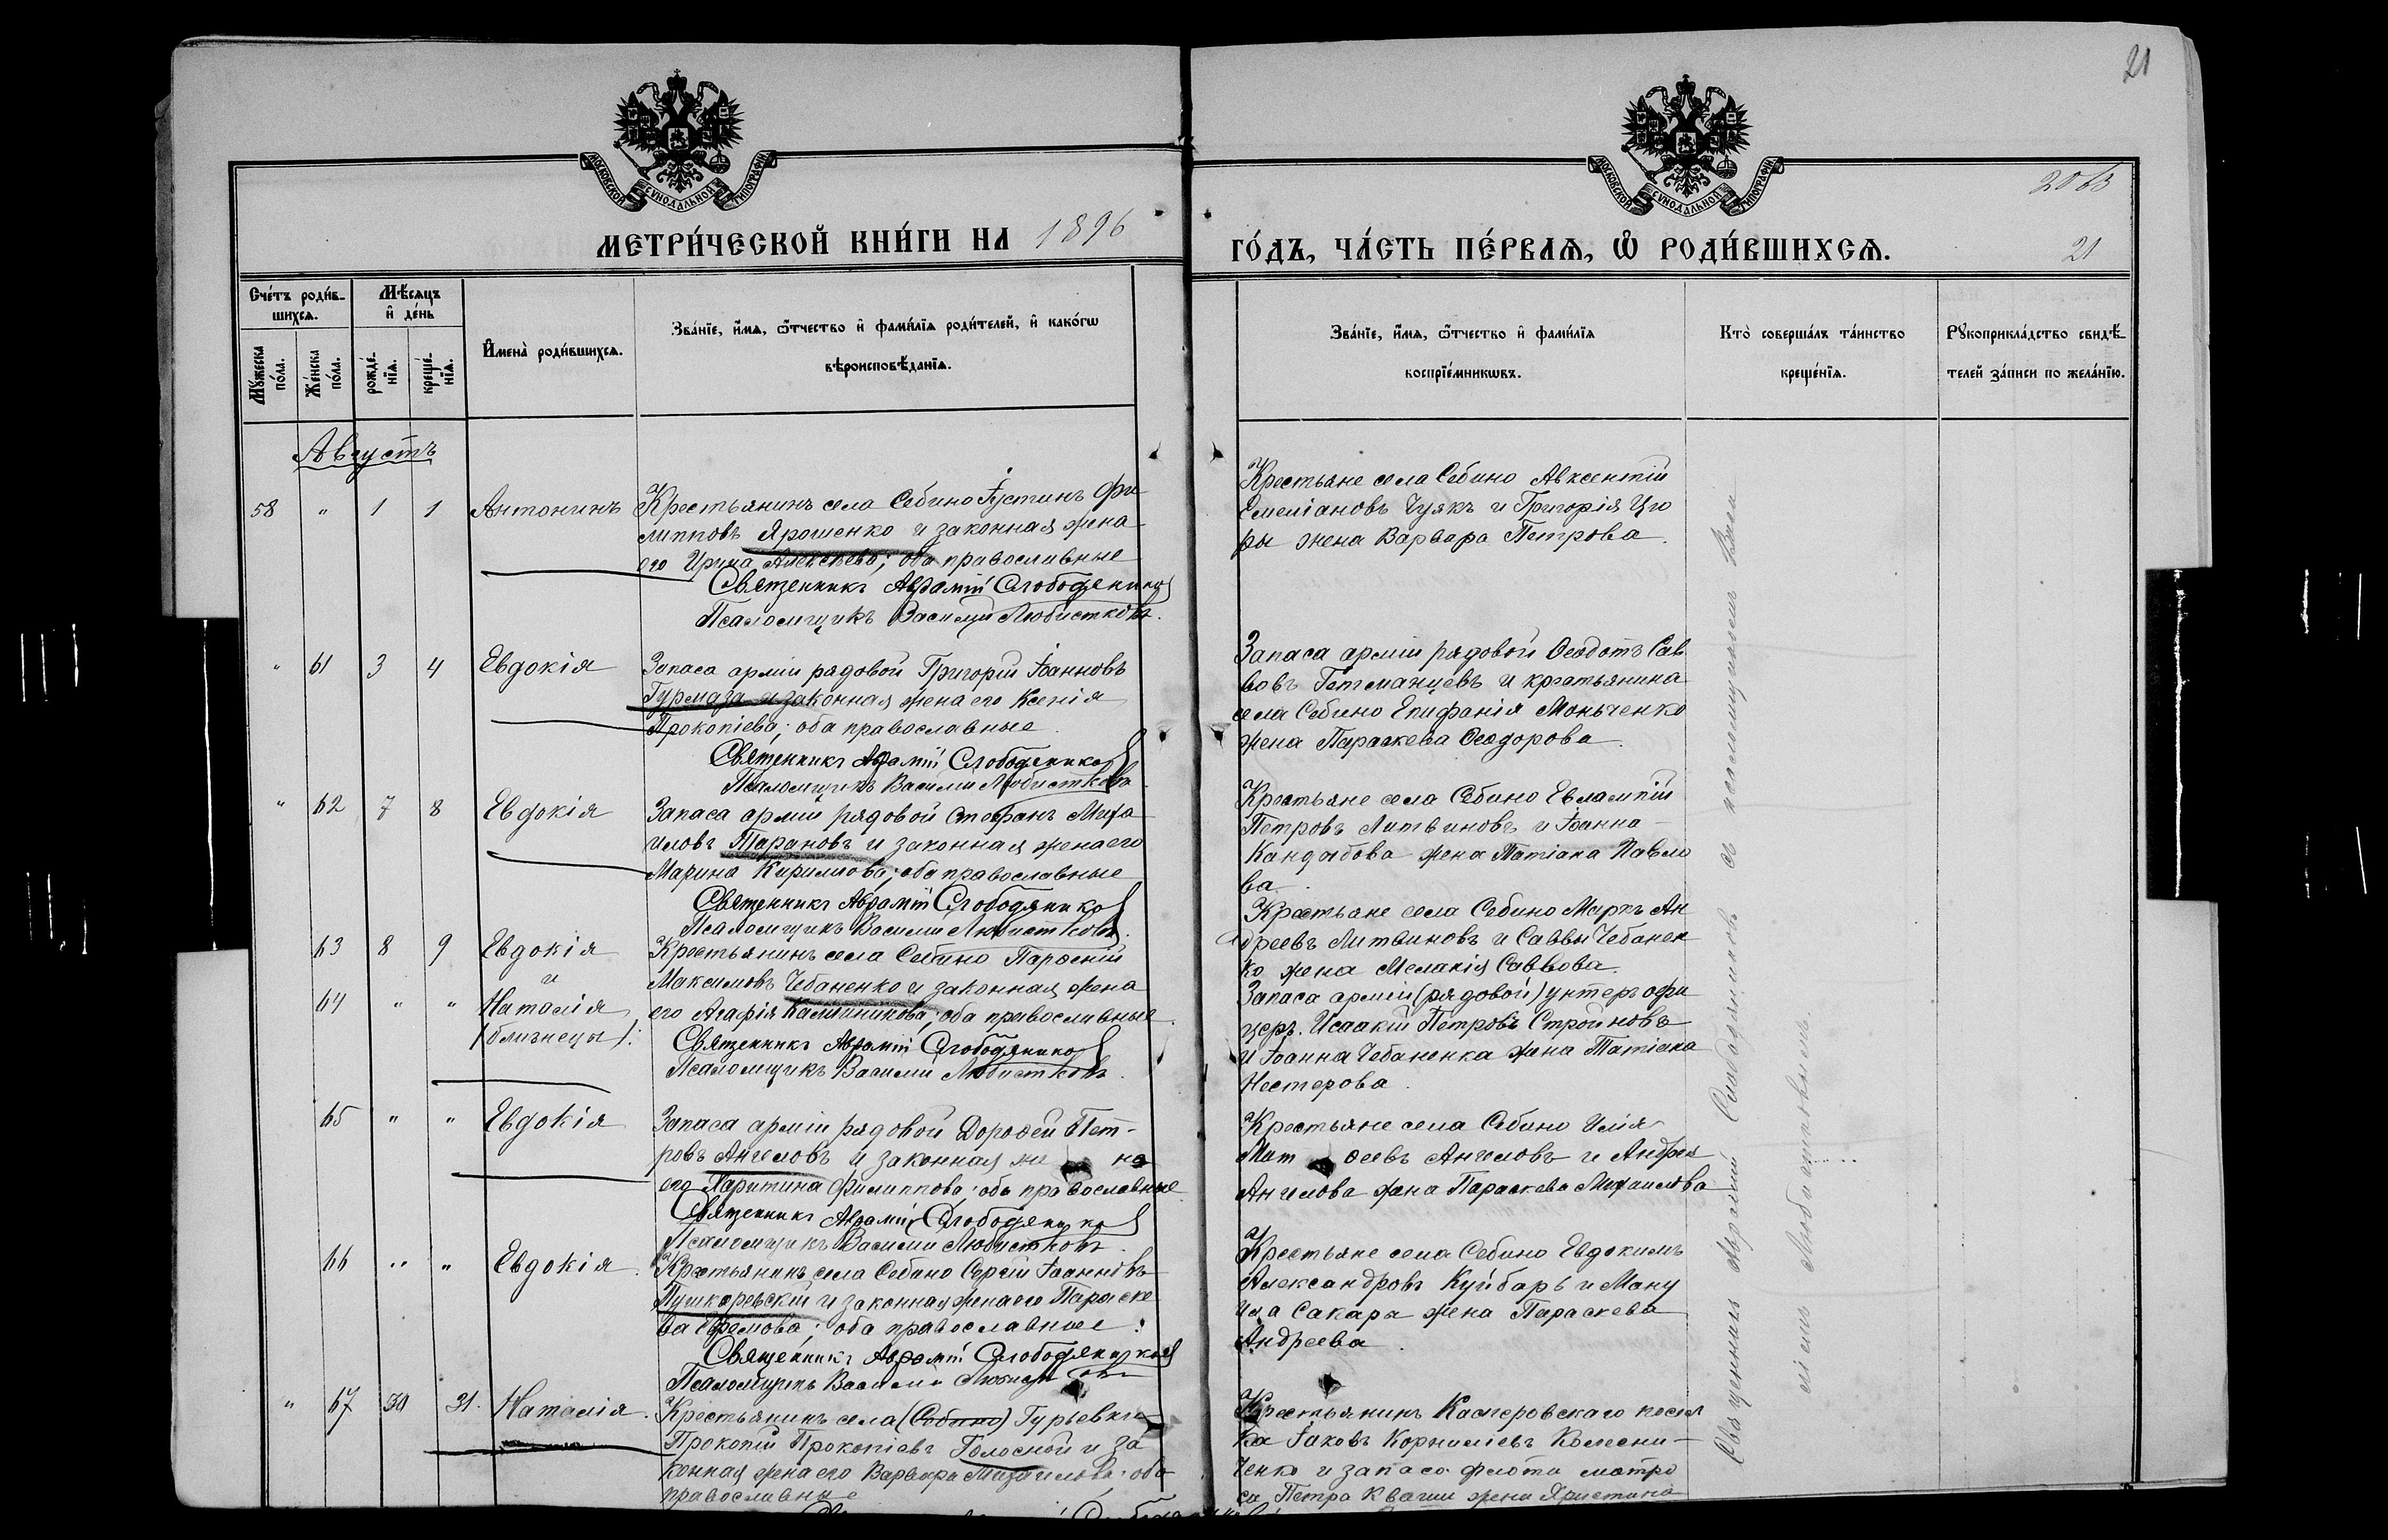 21
2063
21
МОСКОВСКОЙ СУНОДАЛЬНОЙ ТИПОГРАФІИ
МОСКОВСКОЙ СУНОДАЛЬНОЙ ТИПОГРАФІИ
МЕТРИ́ЧЕСКОЙ КНИ́ГИ НА 1896
ГО́ДЪ, ЧА́СТЬ ПЕ́РВАѦ, Ѡ҆ РОДИ́ВШИХСѦ.
Сче́тъ роди́в-
шихсѧ.
Мѣ́сѧцъ
и҆ де́нь
Мꙋ́жеска
по́ла.
Же́нска
по́ла.
рожде́-
нїѧ.
креще́-
нїѧ.
И҆мена̀ роди́вшихсѧ.
Зва́нїе, и҆́мѧ, ѻ҆́тчество и҆ фами́лїѧ роди́телей, и҆ како́гѡ
вѣроисповѣ́данїѧ.
Зва́нїе, и҆́мѧ, ѻ҆́тчество и҆ фами́лїѧ
воспрїе́мникѡвъ.
Кто̀ соверша́лъ та́инство
креще́нїѧ.
Рꙋкоприкла́дство свидѣ́-
телей за́писи по жела́нїю.
Августъ
58 " 1 1 Антонинъ
Крестьянинъ села Себино Іустинъ Фи-
липповъ Ярошенко и законная жена
его Ирина Алексѣева; оба православные
Священникъ Аврамій Слободяников
Псаломщикъ Василій Любистковъ.
Крестьяне села Себино Авксентій
Емеліановъ Чуякъ и Григорія Цю
ры жена Варвара Петрова.
" 61 3 4 Евдокія
Запаса арміи рядовой Григорій Іоанновъ
Гурмаза и законная жена его Ксенія
Прокопіева; оба православные.
Священникъ Аврамій Слободяников
Псаломщикъ Василій Любистковъ
Запаса арміи рядовой Ѳеодотъ Сав
вовъ Гетманцевъ и крестьянина
села Себино Епифанія Моньченко
жена Параскева Ѳеодорова.
" 62 7 8 Евдокія
Запаса арміи рядовой Стефанъ Миха
иловъ Тарановъ и законная жена его
Марина Кириллова; оба православные
Священникъ Аврамій Слободяников
Псаломщикъ Василій Любистковъ.
Крестьяне села Себино Евлампій
Петровъ Литвиновъ и Іоанна
Кандыбова жена Татіана Павло
ва.
63 8 9 Евдокія
и
64 " " Наталія
(близнецы).
Крестьянинъ села Себино Парѳеній
Максимовъ Чебаненко и законная жена
его Агафія Каллиникова; оба православные.
Священникъ Аврамій Слободяников
Псаломщикъ Василій Любистковъ.
Крестьяне села Себино Маркъ Ан
дреевъ Литвиновъ и Саввы Чебанен
ко жена Меланія Саввова.
Запаса арміи (рядовой) унтеръ офи
церъ Исаакій Петровъ Стройновъ
и Іоанна Чебаненка жена Татіана
Нестерова.
65 " " Евдокія
Запаса арміи рядовой Дороѳей Пет-
ровъ Ангеловъ и законная же на
его Харитина Филиппова; оба православные.
Священникъ Аврамій Слободяников
Псаломщикъ Василій Любистковъ.
Крестьяне села Себино Илія
Мат ѳеевъ Ангеловъ и Андрея
Ангелова жена Параскева Михаилова
66 " " Евдокія.
Крестьянинъ села Себино Сергій Іоанновъ
Пушкаревскій и законная жена его Параске
ва Ефремова; оба православные.
Священникъ Аврамій Слободяников
Псаломщикъ Василій
Крестьяне села Себино Евдокимъ
Александровъ Куйбарь и Ману
ила Сакара жена Параскева
Андреева.
" 67 30 31. Наталія.
Крестьянинъ села (Себино) Гурьевки
Прокопій Прокопіевъ Голосной и за
конная жена его Варвара Михаилова; оба
православные
Крестьянинъ Касперовскаго посел
ка Іаковъ Корниліевъ Колесни-
ченко и запаса флота матро
са Петра Кваши жена Христина
Священникъ Аврамій Слободяниковъ съ псаломщикомъ Васи
ліемъ Любистковымъ.